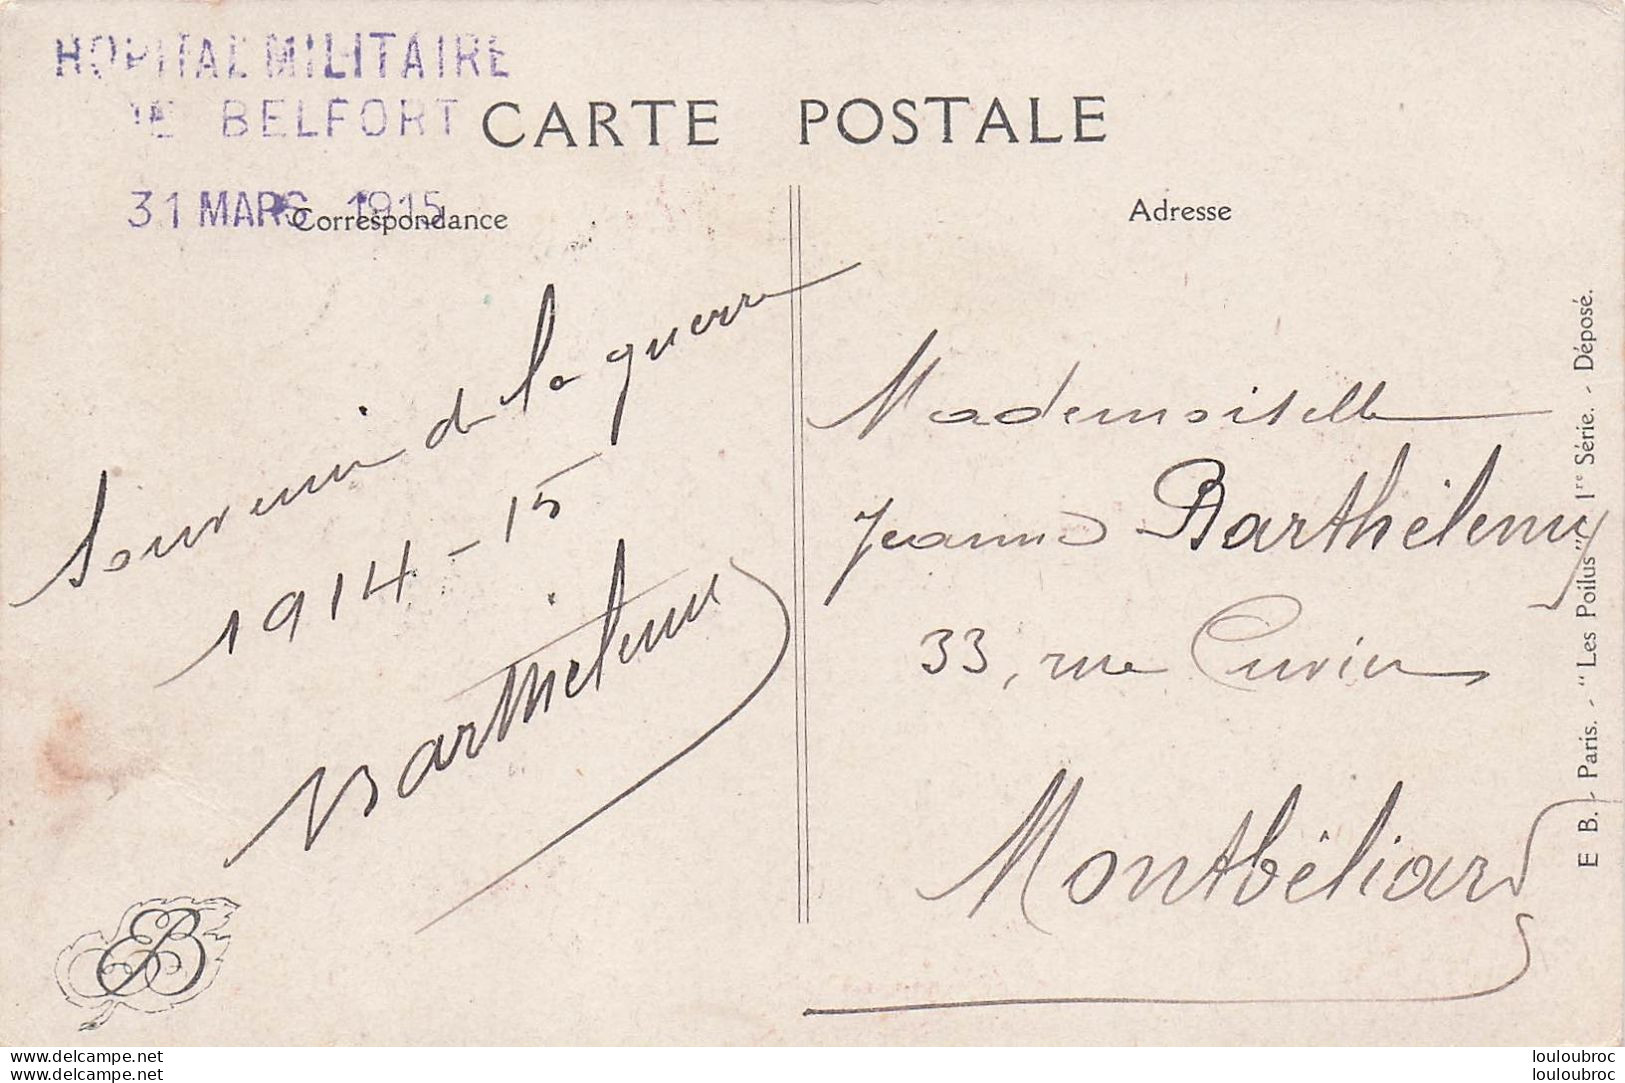 HOPITAL MILITAIRE
DE BELFORT
31 MARS 1915
CARTE POSTALE
Correspondance
Adresse
Souvenir de la guerre
1914-15
Barthélemy
Mademoiselle
Jeanne Barthélemy
33, rue Cuvier
Montbéliard
E B. - Paris. - “Les Poilus” 1re Série. - Déposé.
EB
www.delcampe.net
www.delcampe.net
louloubroc
louloubroc